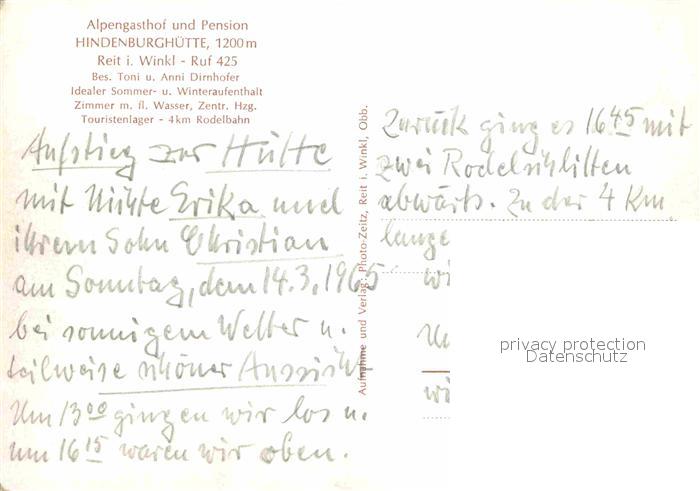 Alpengasthof und Pension
HINDENBURGHÜTTE, 1200 m
Reit i. Winkl - Ruf 425
Bes. Toni u. Anni Dirnhofer
Idealer Sommer- u. Winteraufenthalt
Zimmer m. fl. Wasser, Zentr. Hzg.
Touristenlager - 4 km Rodelbahn
Aufstieg zur Hütte
mit Nichte Erika und
ihrem Sohn Christian
am Sonntag, dem 14.3.1965
bei sonnigem Wetter u.
teilweise schöner Aussicht
Um 13 00 gingen wir los u.
um 16 15 waren wir oben.
Aufnahme und Verlag: Photo-Zeitz, Reit i. Winkl, Obb.
Zurück ging es 16 45 mit
zwei Rodelschlitten
abwärts. Zu der 4 Km
lange
wi
wi
privacy protection
Datenschutz